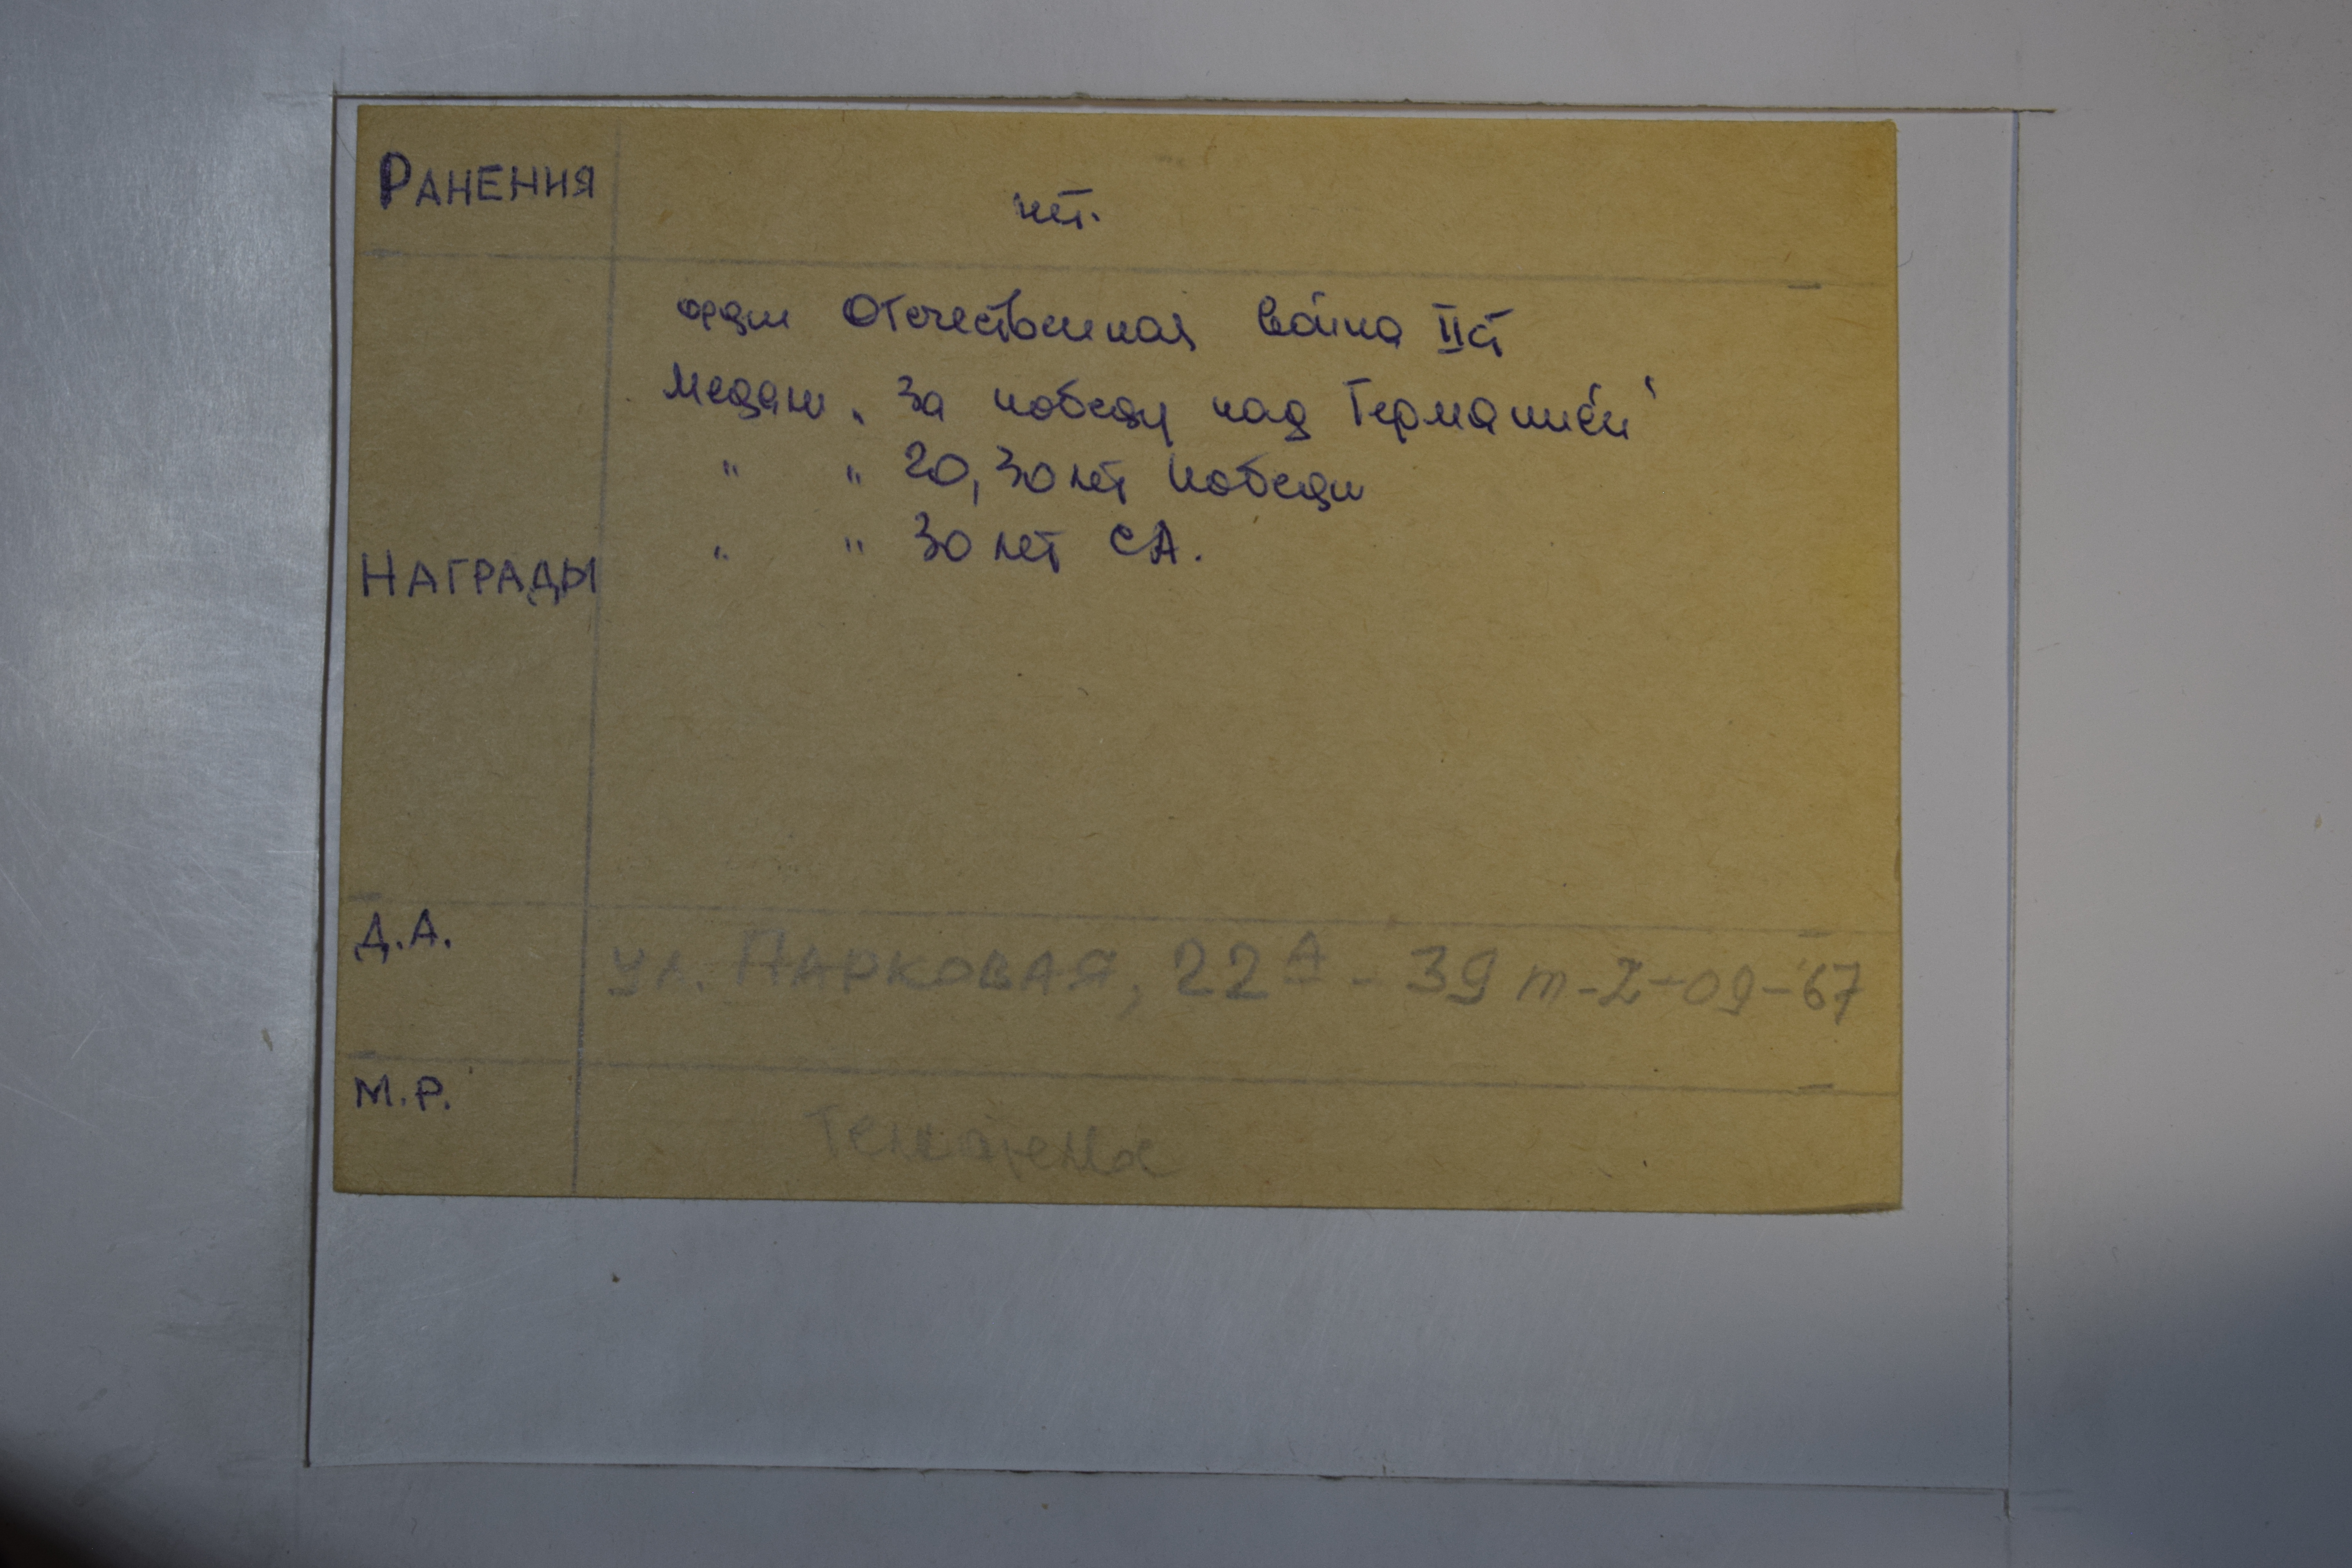 РАНЕНИЯ
нет.
орден Отечественная война II ст
Медаль „За победу над Германией"
" " 20, 30 лет победы
" " 30 лет СА.
НАГРАДЫ
Д.А.
ул. ПАРКОВАЯ, 22А - 39 т-2-09-67
М.Р.